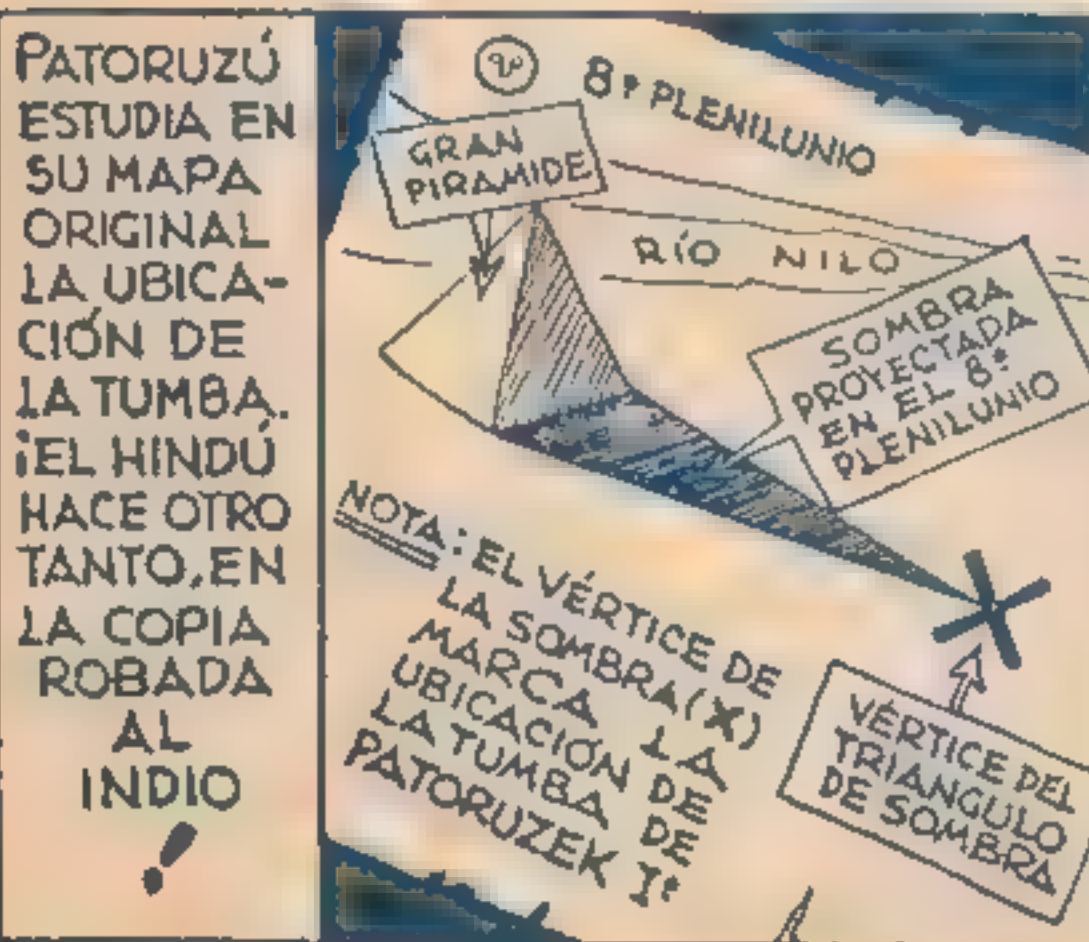 PATORUZÚ
ESTUDIA EN
SU MAPA
ORIGINAL
LA UBICA-
CIÓN DE
LA TUMBA.
¡EL HINDÚ
HACE OTRO
TANTO, EN
LA COPIA
ROBADA
AL
INDIO
!
8º PLENILUNIO
GRAN
PIRAMIDE
RÍO NILO
SOMBRA
PROYECTADA
EN EL 8º
PLENILUNIO
NOTA: EL VÉRTICE DE
LA SOMBRA (X)
MARCA LA
UBICACIÓN DE
LA TUMBA DE
PATORUZEK Iº
VÉRTICE DEL
TRIANGULO
DE SOMBRA